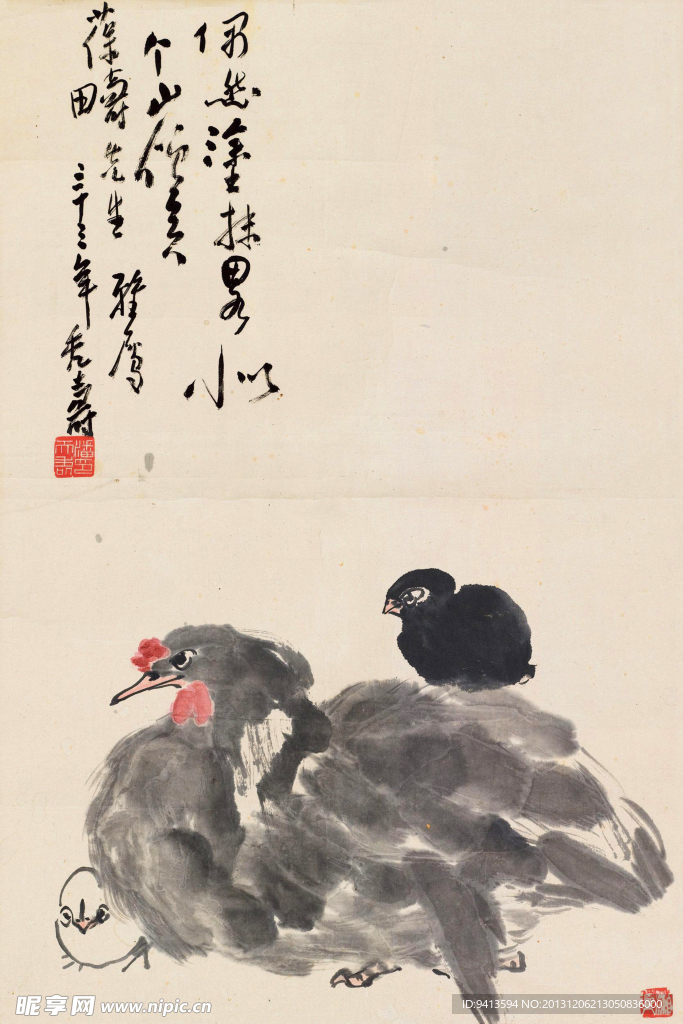 偶然塗抹畧
以
小
个山
葆
壽先生雅屬
田
三十三年秃壽
昵享网 www.nipic.cn
ID:9413594 NO:20131206213050836000